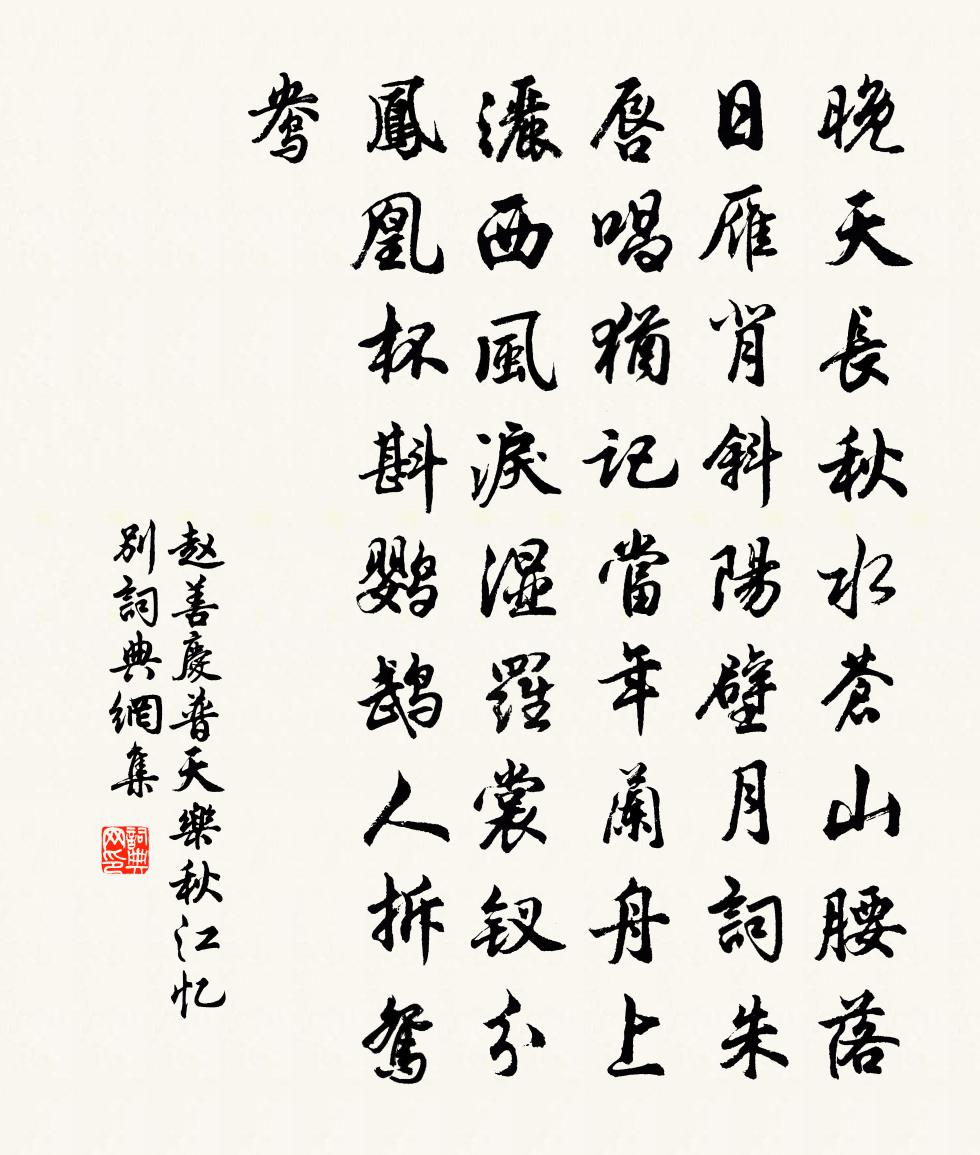 晚天長秋水蒼山腰落
日雁背斜陽壁月詞朱
唇唱猶記當年蘭舟上
灑西風淚濕羅裳釵分
鳳凰杯斟鸚鵡人拆鴛
鴦
赵善慶普天樂秋江忆
別詞典網集
詞典
网印